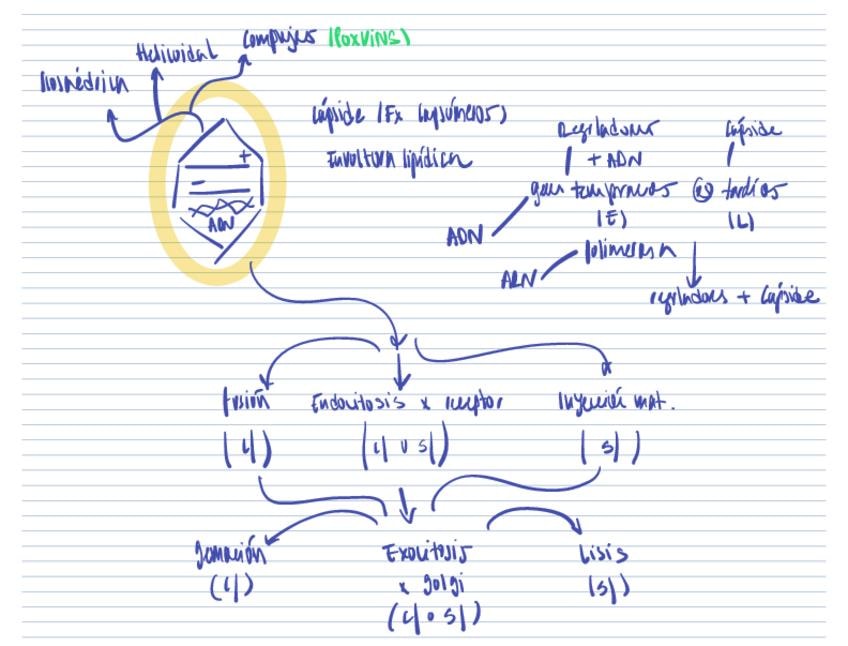 Icosaédrica
Helicoidal
Complejos (Poxvirus)
Cápside (Fx Capsómeros)
Envoltura lipídica
+
-
ADN
Reguladores
+ ADN
genes tempranos
(E)
Cápside
tardíos
(L)
ADN
ARN
Polimerasa
reguladores + Cápside
Fusión
(c/)
Endocitosis x receptor
(c/ o s/)
Inyección mat.
(s/)
Gemación
(c/)
Exocitosis
x golgi
(c/ o s/)
Lisis
(s/)